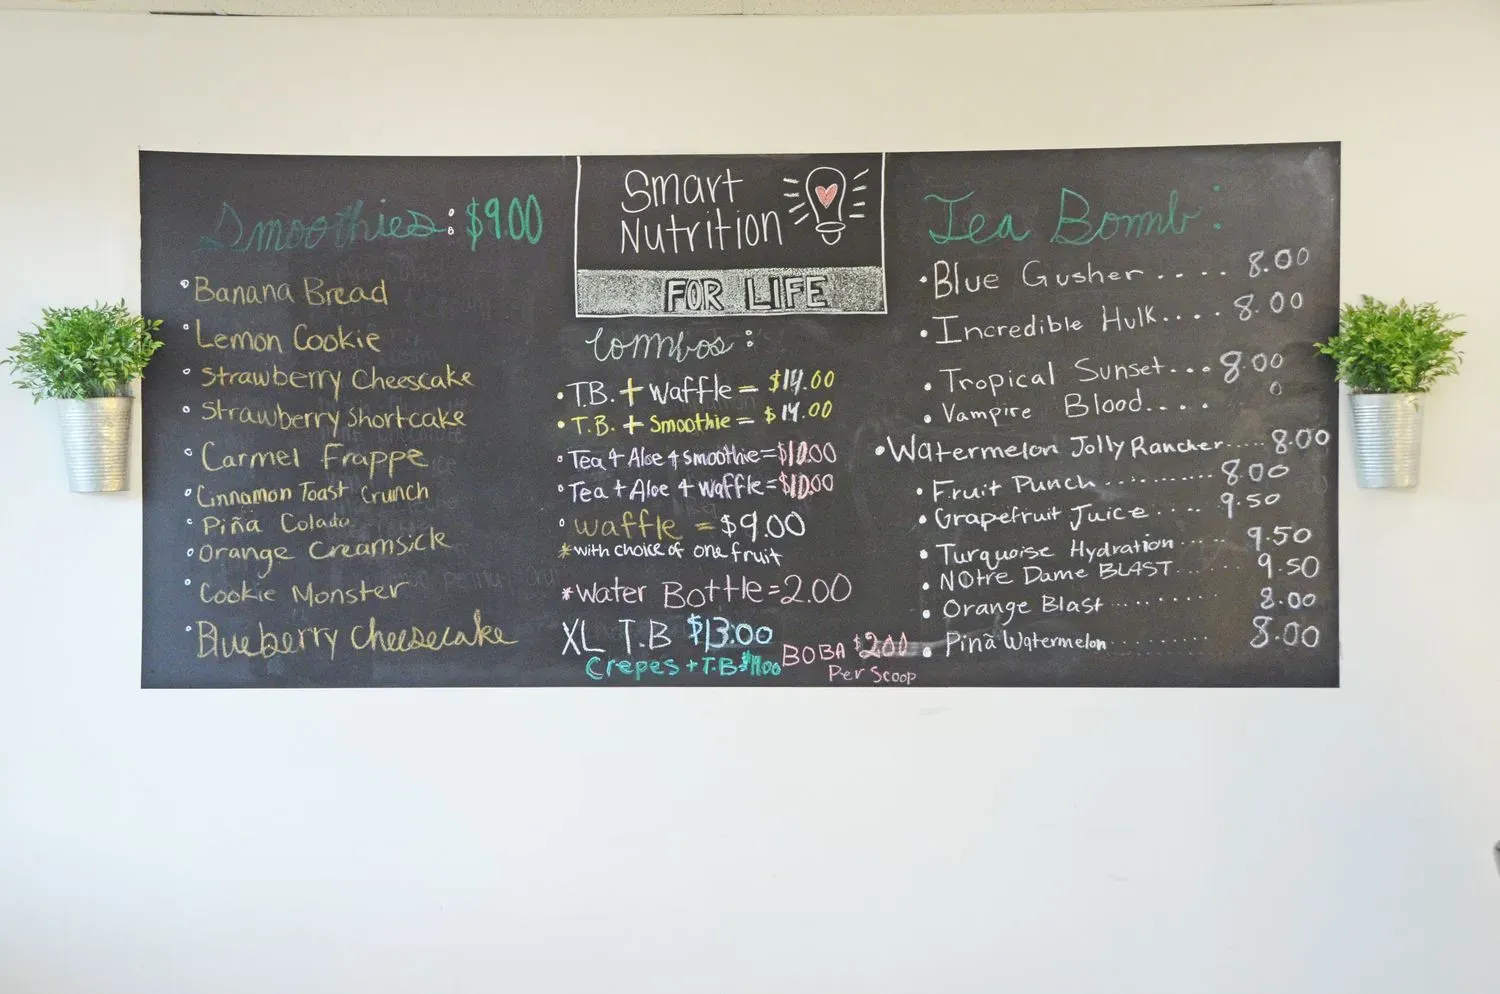 Smoothies: $9.00
Banana Bread
Lemon Cookie
Strawberry Cheescake
Strawberry Shortcake
Carmel Frappe
Cinnamon Toast Crunch
Piña Colada
Orange Creamsick
Cookie Monster
Blueberry Cheesecake
Smart
Nutrition
FOR LIFE
Combos:
T.B. + Waffle = $14.00
T.B. + Smoothie = $14.00
Tea + Aloe + smoothie = $10.00
Tea + Aloe + Waffle = $10.00
Waffle = $9.00
*with choice of one fruit
*Water Bottle = 2.00
XL T.B $13.00
Crepes + T.B
BOBA $2.00
Per Scoop
Tea Bomb:
Blue Gusher .... 8.00
Incredible Hulk.... 8.00
Tropical Sunset... 8.00
Vampire Blood.... 0
Watermelon Jolly Rancher..... 8.00
Fruit Punch .......... 8.00
Grapefruit Juice .... 9.50
Turquoise Hydration ..... 9.50
NOtre Dame BLAST...... 9.50
Orange Blast .......... 8.00
Pinã Watermelon .......... 8.00